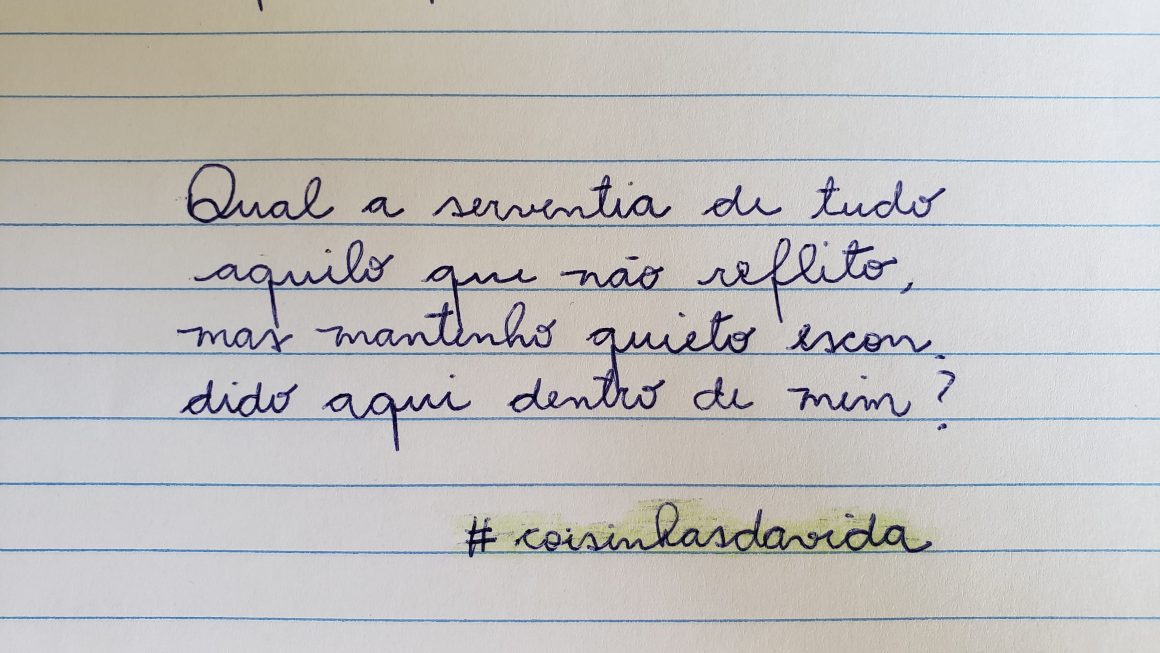 Qual a serventia de tudo
aquilo que não reflito,
mas mantenho quieto escon-
dido aqui dentro de mim?
#coisinhasdavida